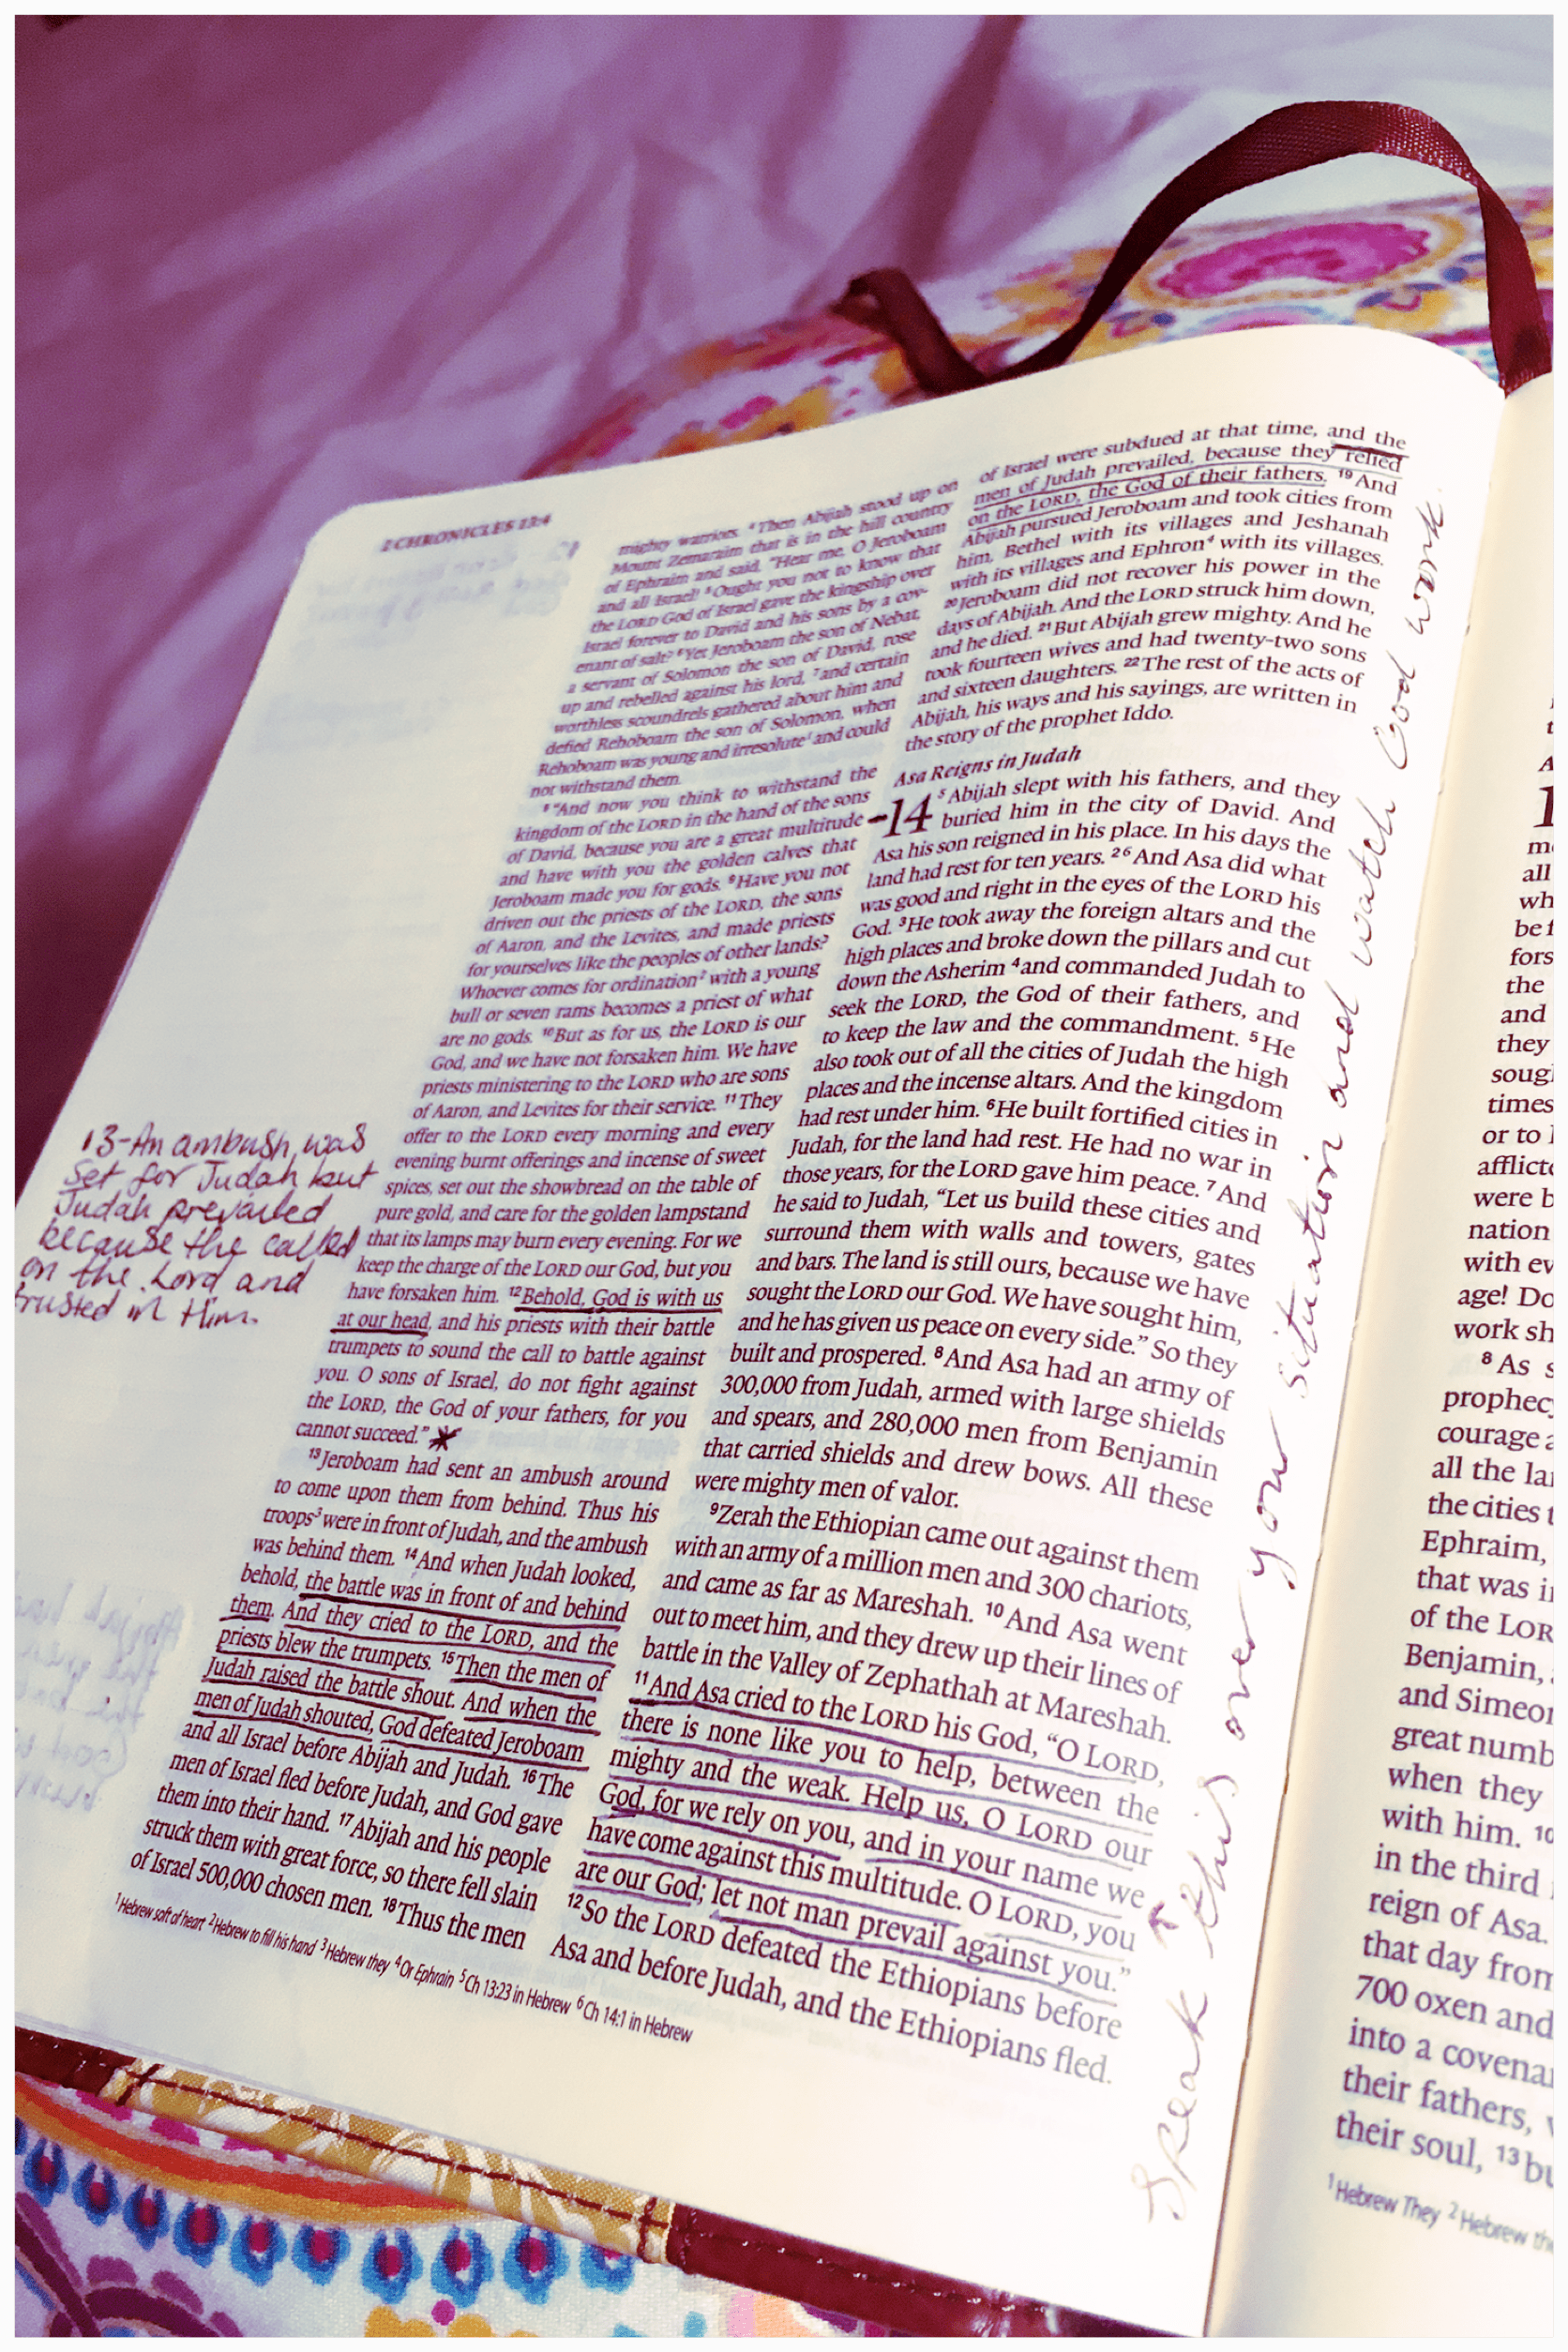 2 CHRONICLES 13:4
mighty warriors. 4 Then Abijah stood up on
Mount Zemaraim that is in the hill country
of Ephraim and said, "Hear me, O Jeroboam
and all Israel! 5 Ought you not to know that
the LORD God of Israel gave the kingship over
Israel forever to David and his sons by a cov-
enant of salt? 6 Yet Jeroboam the son of Nebat,
a servant of Solomon the son of David, rose
up and rebelled against his lord, 7 and certain
worthless scoundrels gathered about him and
defied Rehoboam the son of Solomon, when
Rehoboam was young and irresolute1 and could
not withstand them.
8 "And now you think to withstand the
kingdom of the LORD in the hand of the sons
of David, because you are a great multitude
and have with you the golden calves that
Jeroboam made you for gods. 9 Have you not
driven out the priests of the LORD, the sons
of Aaron, and the Levites, and made priests
for yourselves like the peoples of other lands?
Whoever comes for ordination2 with a young
bull or seven rams becomes a priest of what
are no gods. 10 But as for us, the LORD is our
God, and we have not forsaken him. We have
priests ministering to the LORD who are sons
of Aaron, and Levites for their service. 11 They
offer to the LORD every morning and every
evening burnt offerings and incense of sweet
spices, set out the showbread on the table of
pure gold, and care for the golden lampstand
that its lamps may burn every evening. For we
keep the charge of the LORD our God, but you
have forsaken him. 12 Behold, God is with us
at our head, and his priests with their battle
trumpets to sound the call to battle against
you. O sons of Israel, do not fight against
the LORD, the God of your fathers, for you
cannot succeed."
13 Jeroboam had sent an ambush around
to come upon them from behind. Thus his
troops3 were in front of Judah, and the ambush
was behind them. 14 And when Judah looked,
behold, the battle was in front of and behind
them. And they cried to the LORD, and the
priests blew the trumpets. 15 Then the men of
Judah raised the battle shout. And when the
men of Judah shouted, God defeated Jeroboam
and all Israel before Abijah and Judah. 16 The
men of Israel fled before Judah, and God gave
them into their hand. 17 Abijah and his people
struck them with great force, so there fell slain
of Israel 500,000 chosen men. 18 Thus the men
13-An ambush was
set for Judah but
Judah prevailed
because the called
on the Lord and
trusted in Him.
of Israel were subdued at that time, and the
men of Judah prevailed, because they relied
on the LORD, the God of their fathers. 19 And
Abijah pursued Jeroboam and took cities from
him, Bethel with its villages and Jeshanah
with its villages and Ephron4 with its villages.
20 Jeroboam did not recover his power in the
days of Abijah. And the LORD struck him down,
and he died. 21 But Abijah grew mighty. And he
took fourteen wives and had twenty-two sons
and sixteen daughters. 22 The rest of the acts of
Abijah, his ways and his sayings, are written in
the story of the prophet Iddo.
Asa Reigns in Judah
14 5 Abijah slept with his fathers, and they
buried him in the city of David. And
Asa his son reigned in his place. In his days the
land had rest for ten years. 2 6 And Asa did what
was good and right in the eyes of the LORD his
God. 3 He took away the foreign altars and the
high places and broke down the pillars and cut
down the Asherim 4 and commanded Judah to
seek the LORD, the God of their fathers, and
to keep the law and the commandment. 5 He
also took out of all the cities of Judah the high
places and the incense altars. And the kingdom
had rest under him. 6 He built fortified cities in
Judah, for the land had rest. He had no war in
those years, for the LORD gave him peace. 7 And
he said to Judah, "Let us build these cities and
surround them with walls and towers, gates
and bars. The land is still ours, because we have
sought the LORD our God. We have sought him,
and he has given us peace on every side." So they
built and prospered. 8 And Asa had an army of
300,000 from Judah, armed with large shields
and spears, and 280,000 men from Benjamin
that carried shields and drew bows. All these
were mighty men of valor.
9 Zerah the Ethiopian came out against them
with an army of a million men and 300 chariots,
and came as far as Mareshah. 10 And Asa went
out to meet him, and they drew up their lines of
battle in the Valley of Zephathah at Mareshah.
11 And Asa cried to the LORD his God, "O LORD,
there is none like you to help, between the
mighty and the weak. Help us, O LORD our
God, for we rely on you, and in your name we
have come against this multitude. O LORD, you
are our God; let not man prevail against you."
12 So the LORD defeated the Ethiopians before
Asa and before Judah, and the Ethiopians fled.
1 Hebrew soft of heart 2 Hebrew to fill his hand 3 Hebrew they 4 Or Ephrain 5 Ch 13:23 in Hebrew 6 Ch 14:1 in Hebrew
Speak this over your situation and watch God work.
all
wh
be f
fors
the
and
they
soug
times
or to
afflict
were b
nation
with ev
age! Do
work sh
8 As s
prophec
courage a
all the la
the cities t
Ephraim,
that was i
of the LOR
Benjamin,
and Simeo
great numb
when they
with him. 10
in the third
reign of Asa.
that day from
700 oxen and
into a covena
their fathers,
their soul, 13 bu
1 Hebrew They 2 Hebrew th